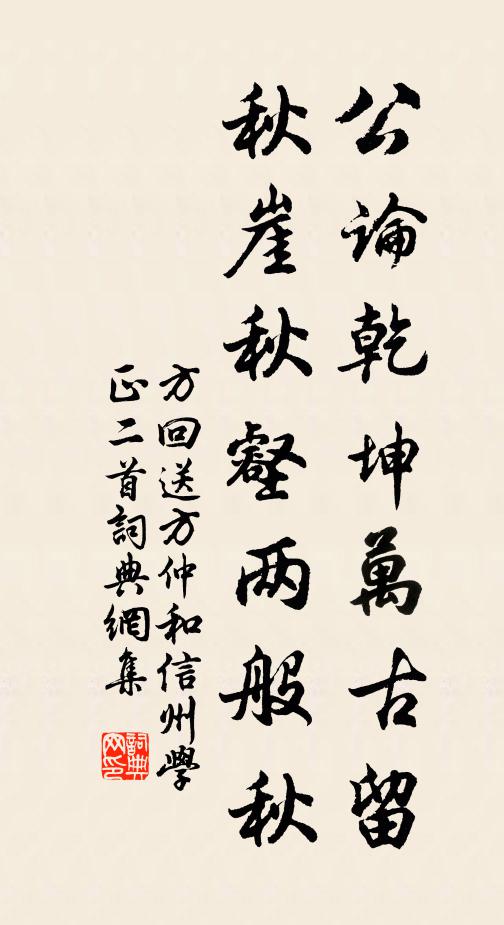 公論乾坤萬古留
秋崖秋壑两般秋
方回送方仲和信州學
正二首詞典網集
詞典
网印